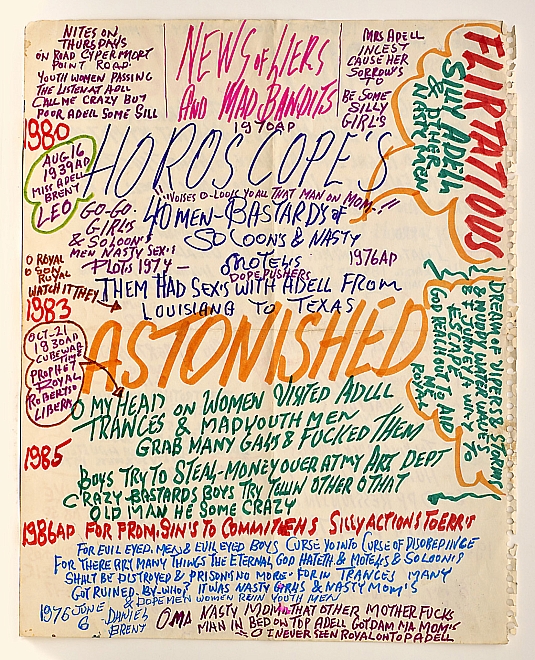 NITES ON
THURSDAYS
ON ROAD CYPERMORT
POINT ROAD.
YOUTH WOMEN PASSING
THE LISTEN AT ADLL
CALL ME CRAZY BUT
POOR ADELL SOME SILL
NEWS OF LIERS
AND MAD BANDITS
MRS ADELL
INCEST
CAUSE HER
SORROWS
TO
BE SOME
SILLY
GIRL'S
FLIRTATIOUS
SILLY ADELL
& OTHER
NASTY MEN
1980
1970AP
HOROSCOPE'S
AUG 16
1939 AD
MISS ADELL
BRENT
LEO
"VOISES O-LOOK YO ALL THAT MAN ON MOM-!!
GO-GO
GIRL'S
& SOLOON'S
MEN NASTY SEX'S
PLOTS 1974 —
40 MEN-BASTARDS OF
SO LOONS & NASTY
MOTELS
1976AP
DOPE PUSHERS
O ROYAL
O SON
ROYAL
WATCH IT THEY
THEM HAD SEX'S WITH ADELL FROM
LOUISIANA TO TEXAS
1983
OCT-21
1930AD
CUREWAR
TIME
PROPHET
ROYAL
ROBERTSO
LIBERA
ASTONISHED
DREAM OF VIPERS & STORMS
& MUDDY WATER WAVES
& OF JURNEY & WRY TO
ESCAPE
GOD REACH OUT TO AID
ME
ROYAL
O MY HEAD ON WOMEN VISITED ADLLL
TRANCES & MAD YOUTH MEN
GRAB MANY GALS & FUCKED THEM
1985
BOYS TRY TO STEAL-MONEY OVER AT MY ART DEPT
CRAZY BASTARDS BOYS TRY TELLIN OTHER O THAT
OLD MAN HE SOME CRAZY
1986AP FOR FROM, SIN'S TO COMMITENS SILLY ACTIONS TO ERR'S
FOR EVIL EYED, MEN & EVIL EYED BOYS CURSE YO INTO CURSE OF DISOBEDINCE
FOR THERE ARY MANY THINGS THE ETERNAL GOD HATETH, & MOTELS & SOLOONS
SHALT BE DISTROYED & PRISONS NO MORE-FOR IN TRANCES MANY
GOT RUINED. BY-WHO'S IT WAS NASTY GIRLS & NASTY MOM'S
& DOPE MEN WOMEN REIN YOUTH MEN
1976 JUNE
6 - DANIEL
BRENT
O MA NASTY MOM THAT OTHER MOTHER FUCKS
MAN IN BED ON TOP ADELL GOT DAM MA MOM'S
O I NEVER SEEN ROYAL ON TOP ADELL